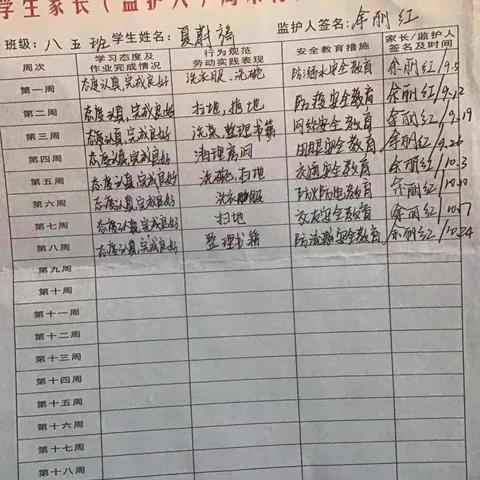 学生家长（监护人）周末
班级：八 五 班 学生姓名：夏蔚 监护人签名：余丽红
周次 学习态度及作业完成情况 行为规范劳动实践表现 安全教育措施 家长/监护人签名及时间
第一周 态度认真,完成良好 洗衣服、洗碗 防溺水安全教育 余丽红/9.5
第二周 态度认真,完成良好 扫地,拖地 安全教育 余丽红/9.12
第三周 态度认真,完成良好 洗菜 整理书籍 网络安全教育 余丽红/9.19
第四周 态度认真,完成良好 清理房间 用眼安全教育 余丽红/9.26
第五周 态度认真,完成良好 洗碗,扫地 交通安全教育 余丽红/10.3
第六周 态度认真,完成良好 洗衣服 防火防电教育 余丽红/10.10
第七周 态度认真,完成良好 扫地 交友安全教育 余丽红/10.17
第八周 态度认真,完成良好 整理书籍 防流感安全教育 余丽红/10.24
第九周
第十周
第十一周
第十二周
第十三周
第十四周
第十五周
第十六周
第十七周
第十八周